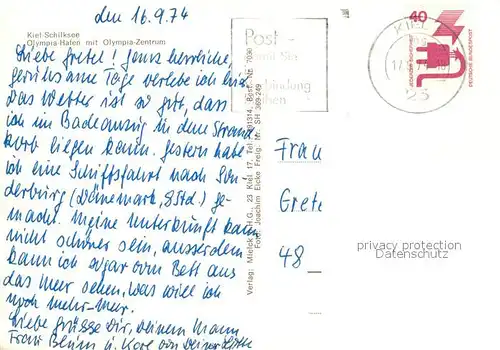 den 16.9.74
Kiel-Schilksee
Olympia-Hafen mit Olympia-Zentrum
Liebe Gretel! Ganz herrliche,
geruhsame Tage verlebe ich hier.
Das Wetter ist so gut, dass
ich im Badeanzug in dem Strand
korb liegen kann. Gestern habe
ich eine Schiffsfahrt nach Son
derburg (Dänemark, 8 Std.) ge-
macht. Meine Unterkunft kann
nicht schöner sein, ausserdem
kann ich sogar vom Bett aus
das Meer sehen, was will ich
noch mehr-Meer.
Liebe Grüsse Dir, Deinem Mann,
Frau Blum u. Karl von Deiner
Verlag: Mielck OHG. 23 Kiel 17, Tel.
Foto: Joachim Eicke Freig. Nr. SH 389-249
Post -
KIEL
23
40
DEUTSCHE BUNDESPOST
Frau
Grete
48
privacy protection
Datenschutz